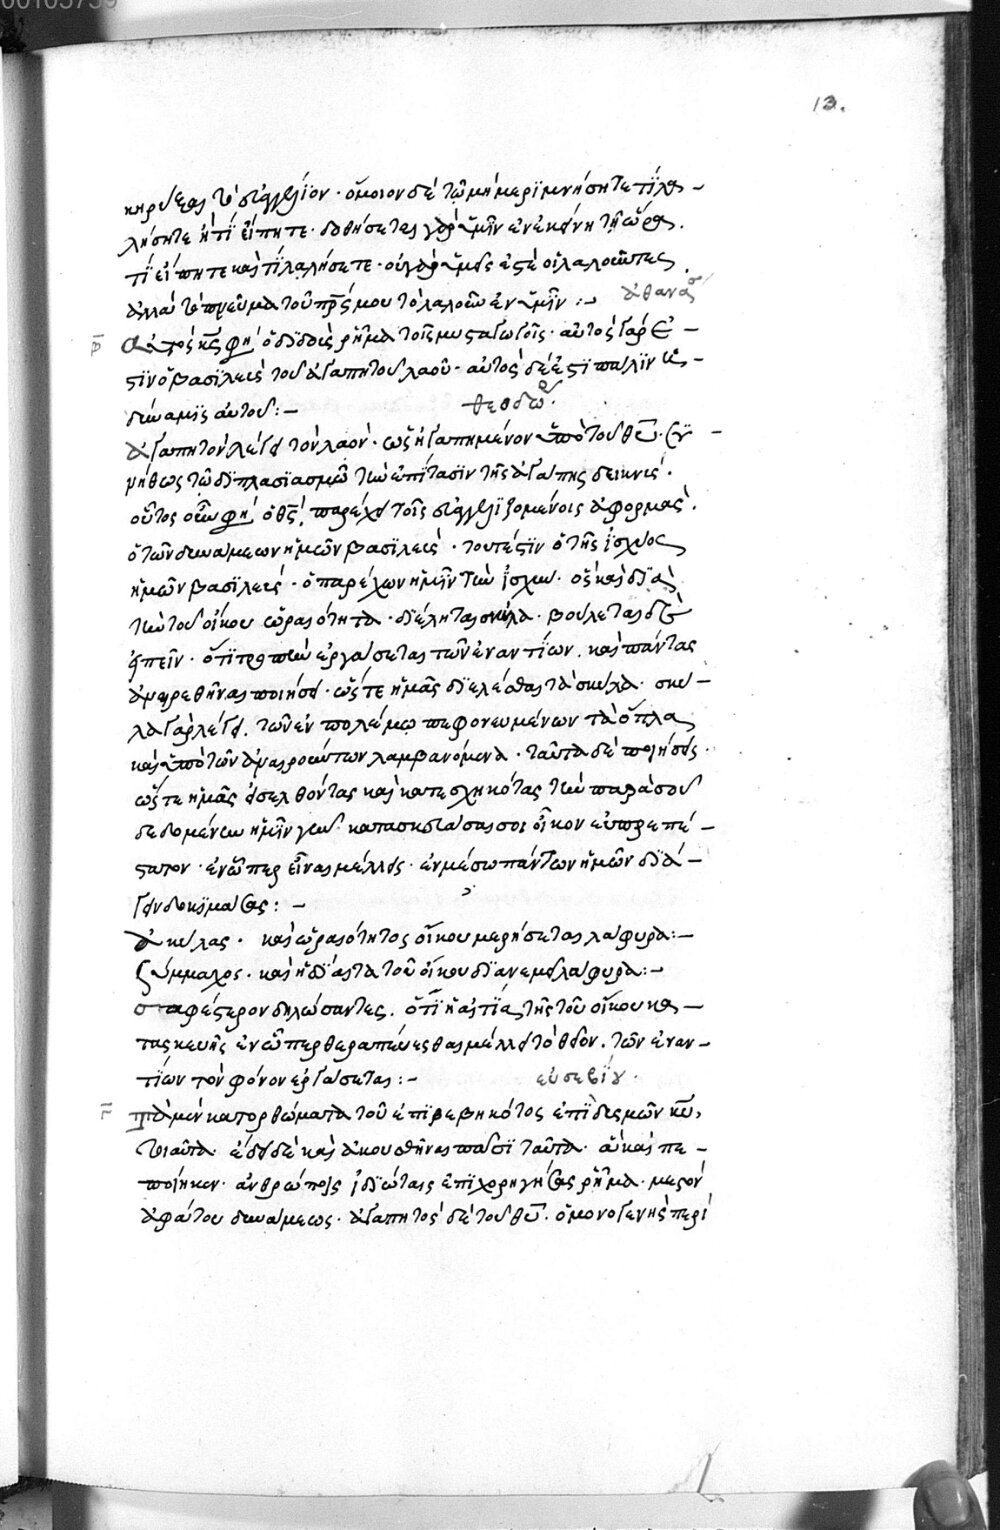 00105759
13.
κηρύξαι τὸ εὐαγγέλιον· ὅμοιον δὲ τῶ μὴ μεριμνήσητε τί λα –
λήσητε ἢ τί εἴπητε· δοθήσεται γὰρ ὑμῖν ἐν ἐκείνη τῆ ὥρα.
τί εἴπητε καὶ τί λαλήσετε· οὐ γὰρ ὑμεῖς ἐστὲ οἱ λαλοῦντες
ἀλλὰ τὸ πνεῦμα τοῦ πρς μου τὸ λαλοῦν ἐν ὑμῖν :– ἀθανασ
αὐτὸς κς φη ὁ διδοὺς ῥῆμα τοῖς μυσταγωγοῖς· αὐτὸς γάρ ἐ –
στιν ὁ βασιλεὺς τοῦ ἀγαπητοῦ λαοῦ· αὐτὸς δέ ἐστι πάλιν ἡ –
δύναμις αὐτοῦ :– θεοδω
ἀγαπητὸν λέγει τὸν λαόν· ὡς ἠγαπημένον ὑπὸ τοῦ θυ· συ –
νήθως τῶ διπλασιασμῶ τὴν ἐπίτασιν τῆς ἀγάπης δεικνύς·
οὗτος οὖν φη ὁ θς, παρέχει τοῖς εὐαγγελιζομένοις ἀφορμάς.
ὁ τῶν δυνάμεων ἡμῶν βασιλεύς· τουτέστιν ὁ τῆς ἰσχύος
ἡμῶν βασιλεύς· ὁ παρέχων ἡμῖν τὴν ἰσχύν· ὃς καὶ διὰ
τὴν τοῦ οἴκου ὡραιότητα· διέληται σκῦλα· βούλεται δὲ
εἰπεῖν· ὅτι τροπὴν ἐργάσεται τῶν ἐναντίων. καὶ πάντας
ἀναιρεθῆναι ποιήσει· ὥστε ἡμᾶς διελέσθαι τὰ σκῦλα· σκυ –
λα γὰρ λέγει. τῶν ἐν πολέμω πεφονευμένων τὰ ὅπλα
καὶ ὑπὸ τῶν ἀναιρούντων λαμβανόμενα· ταῦτα δὲ ποιήσεις·
ὥστε ἡμᾶς εἰσελθόντας καὶ κατεσχηκότας τὴν παρὰ σοῦ
δεδομένην ἡμῖν γῆν· κατασκευάσαι σοι οἶκον εὐπρεπέ –
στατον· ἐν ὧπερ εἶναι μέλλεις· ἐν μέσω πάντων ἡμῶν διά –
γειν δοκιμάσας :–
ἀκύλας· καὶ ὡραιότητος οἴκου μερήσεται λάφυρα :–
σύμμαχος· καὶ ἡ δίαιτα τοῦ οἴκου διανεμεῖ λάφυρα :–
σαφέστερον δηλώσαντες. ὅτι ἡ αἰτία τῆς τοῦ οἴκου κα –
τασκευῆς ἐν ὧπερ θεραπεύεσθαι μέλλει τὸ θεῖον. τῶν ἐναν –
τίων τὸν φόνον ἐργάσεται :– εὐσεβίου·
τὰ μὲν κατορθώματα τοῦ ἐπιβεβηκότος ἐπὶ δυσμῶν κυ,
τοιαῦτα· ἔδει δὲ καὶ ἀκουσθῆναι πᾶσι ταῦτα· ἃ καὶ πε –
ποίηκεν· ἀνθρώποις ἰδιώταις ἐπιχορηγήσας ῥῆμα· μεστὸν
ἀφάτου δυνάμεως· ἀγαπητὸς δὲ τοῦ θυ· ὁ μονογενὴς περὶ